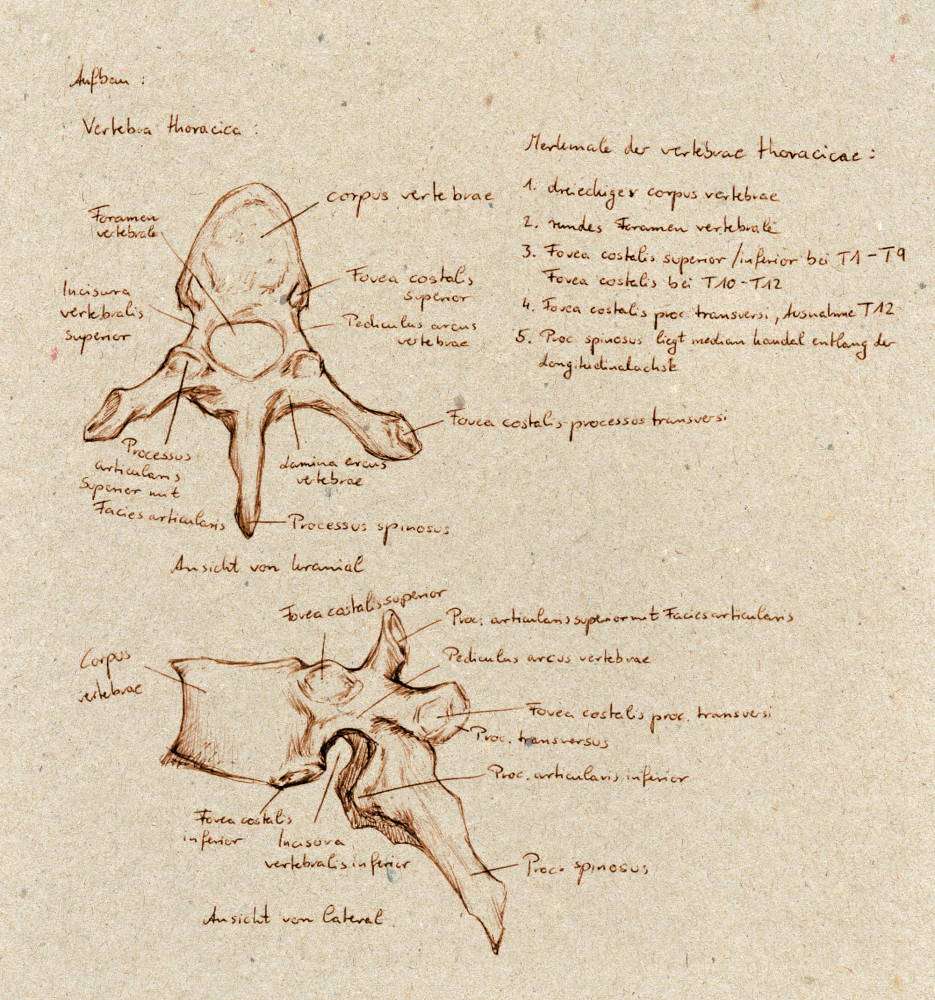 Aufbau :
Vertebra thoracica :
corpus vertebrae
Foramen
vertebrale
Fovea costalis
superior
Incisura
vertebralis
superior
Pediculus arcus
vertebrae
Fovea costalis processus transversi
Processus
articularis
Superior mit
Facies articularis
Lamina arcus
vertebrae
Processus spinosus
Ansicht von kranial
Merkmale der vertebrae thoracicae :
1. dreieckiger corpus vertebrae
2. rundes Foramen vertebrale
3. Fovea costalis superior /inferior bei T1-T9
Fovea costalis bei T10-T12
4. Fovea costalis proc. transversi, Ausnahme T12
5. Proc spinosus liegt median kaudal entlang der
Longitudinalachse
Fovea costalis superior
Proc. articularis superior mit Facies articularis
Corpus
vertebrae
Pediculus arcus vertebrae
Fovea costalis proc. transversi
Proc. transversus
Proc. articularis inferior
Fovea costalis
inferior
Incisura
vertebralis inferior
Proc. spinosus
Ansicht von lateral